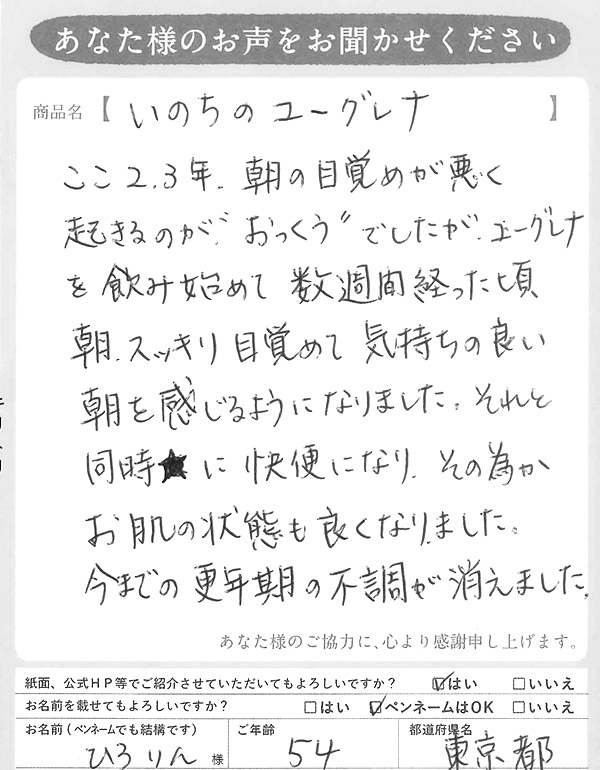 あなた様のお声をお聞かせください
商品名【いのちのユーグレナ】
ここ2,3年、朝の目覚めが悪く
起きるのが〝おっくう〟でしたが、ユーグレナ
を飲み始めて数週間経った頃
朝、スッキリ目覚めて気持ちの良い
朝を感じるようになりました。それと
同時★に快便になり、その為か
お肌の状態も良くなりました。
今までの更年期の不調が消えました。
あなた様のご協力に、心より感謝申し上げます。
紙面、公式HP等でご紹介させていただいてもよろしいですか？ ☑はい □いいえ
お名前を載せてもよろしいですか？ □はい ☑ペンネームはOK □いいえ
お名前(ペンネームでも結構です) ご年齢 都道府県名
ひろりん 様 54 東京都